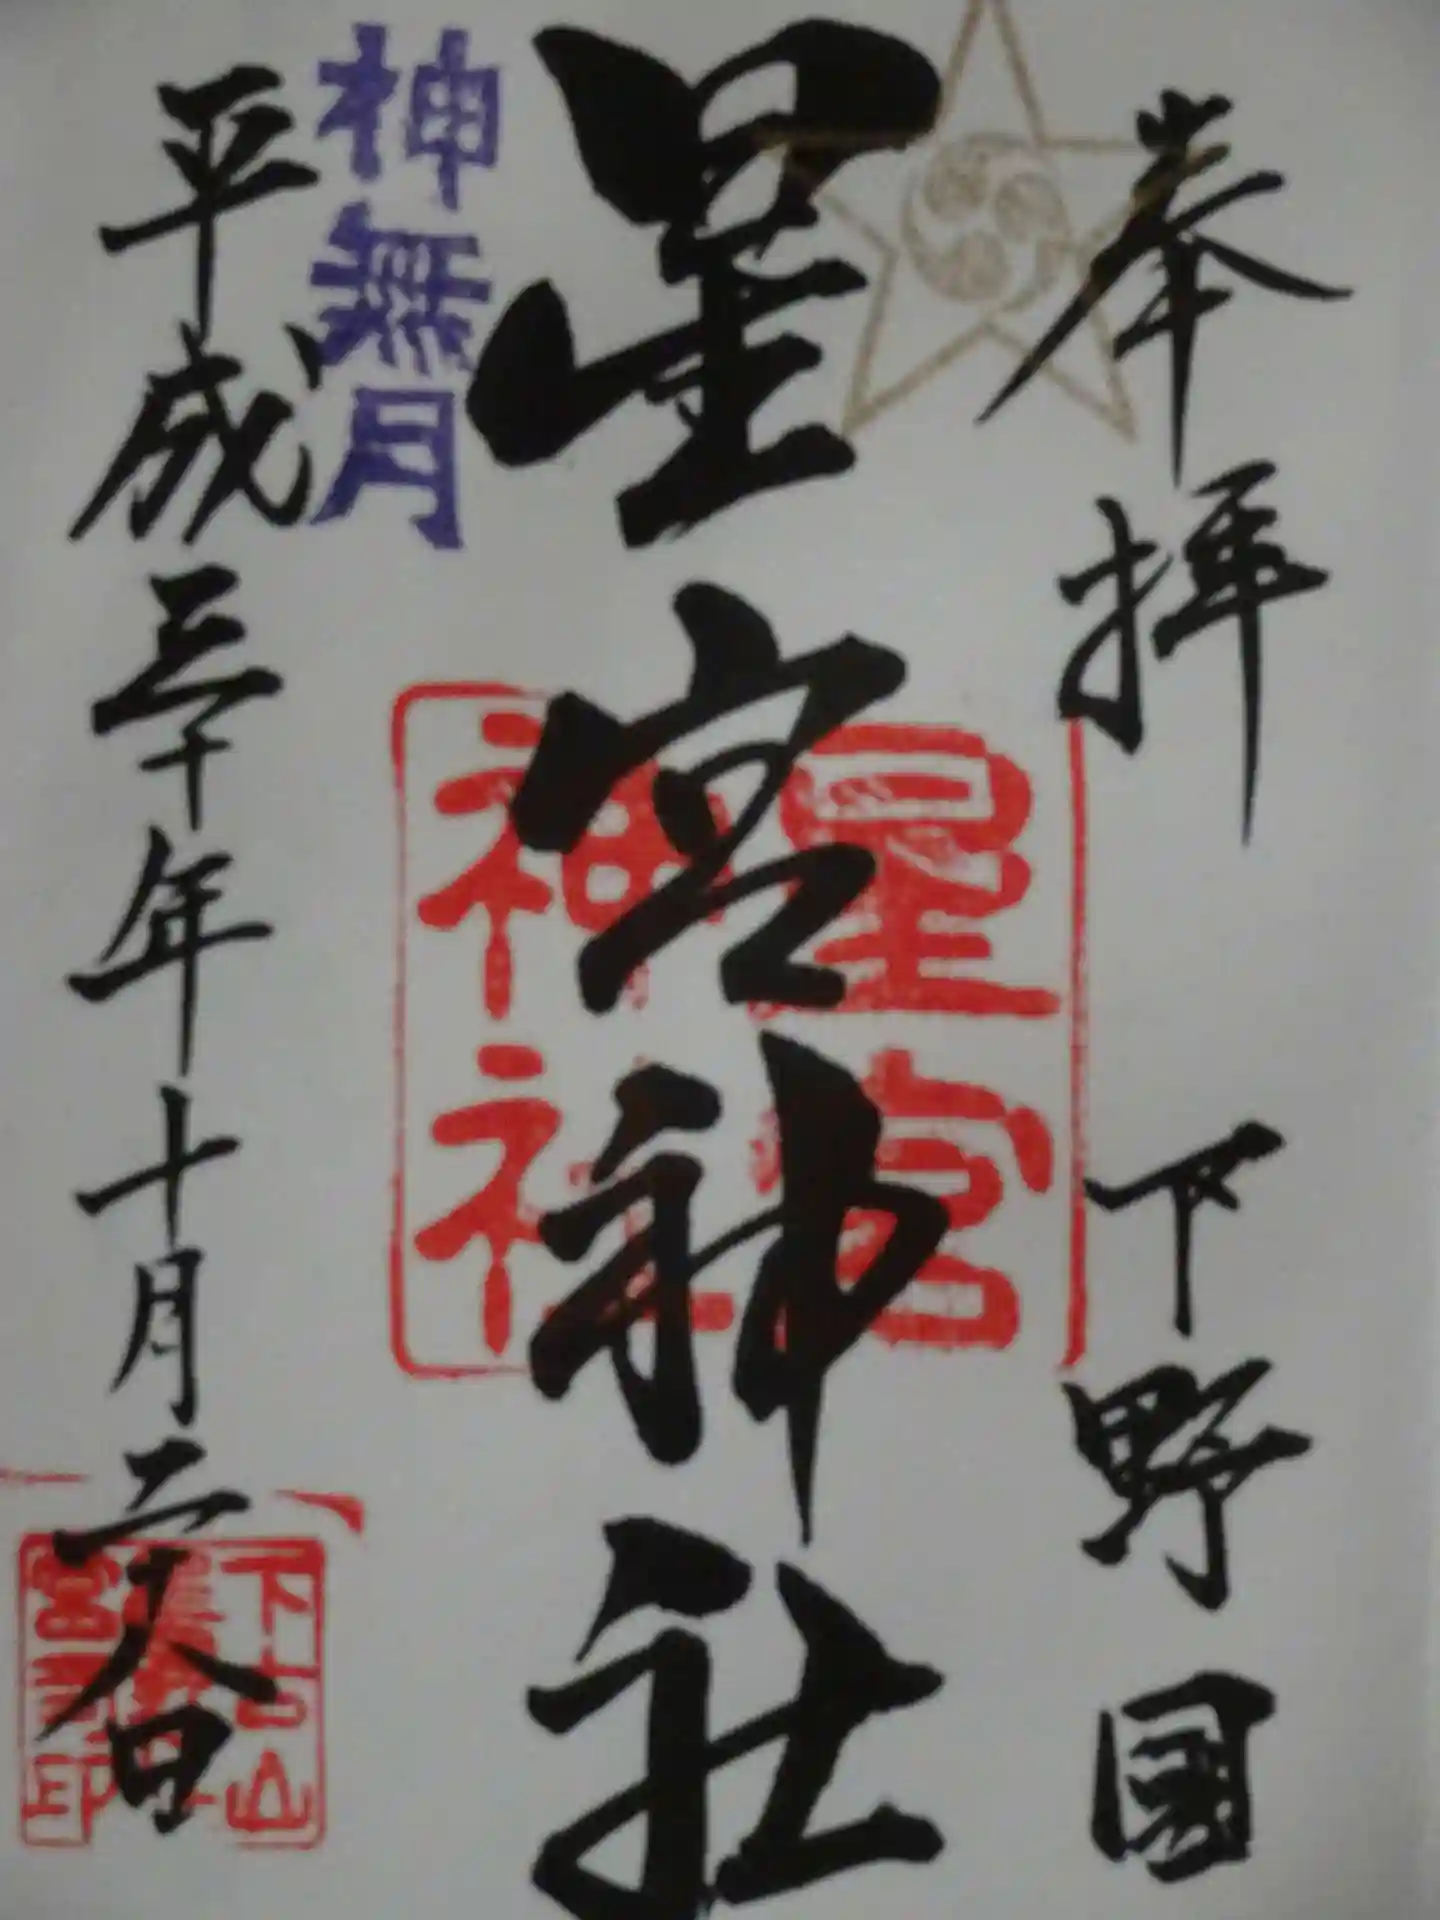 奉拝 下野國
星宮神社
星宮
神社
神無月
平成三十年十月二十八日
下古山
宮司印